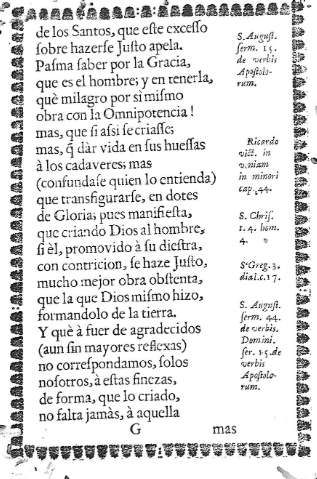 de los Santos, que eſte exceſſo
ſobre hazerſe Juſto apela.
Paſma ſaber por la Gracia,
que es el hombre; y en tenerla,
què milagro por si miſmo
obra con la Omnipotencia!
mas, que ſi aſsi ſe criaſſe;
mas, q̃ dàr vida en ſus hueſſas
à los cadaveres; mas
(confundaſe quien lo entienda)
que transfigurarſe, en dotes
de Gloria; pues manifieſta,
que criando Dios al hombre,
ſi èl, promovido à ſu dieſtra,
con contricion, ſe haze Juſto,
mucho mejor obra obſtenta,
que la que Dios miſmo hizo,
formandolo de la tierra.
Y què à fuer de agradecidos
(aun ſin mayores reflexas)
no correſpondamos, ſolos
noſotros, à eſtas finezas,
de forma, que lo criado,
no falta jamàs, à aquella
G mas
S. Auguſt.
ſerm. 15.
de verbis
Apoſtolo-
rum.
Ricardo
vict. in
in minori
cap. 44.
S. Chriſ.
t. 4. hom.
4.
S. Greg. 3.
dial. c. 17.
S. Auguſt.
ſerm. 44.
de verbis.
Domini.
ſer. 15. de
verbis
Apoſtolo-
rum.